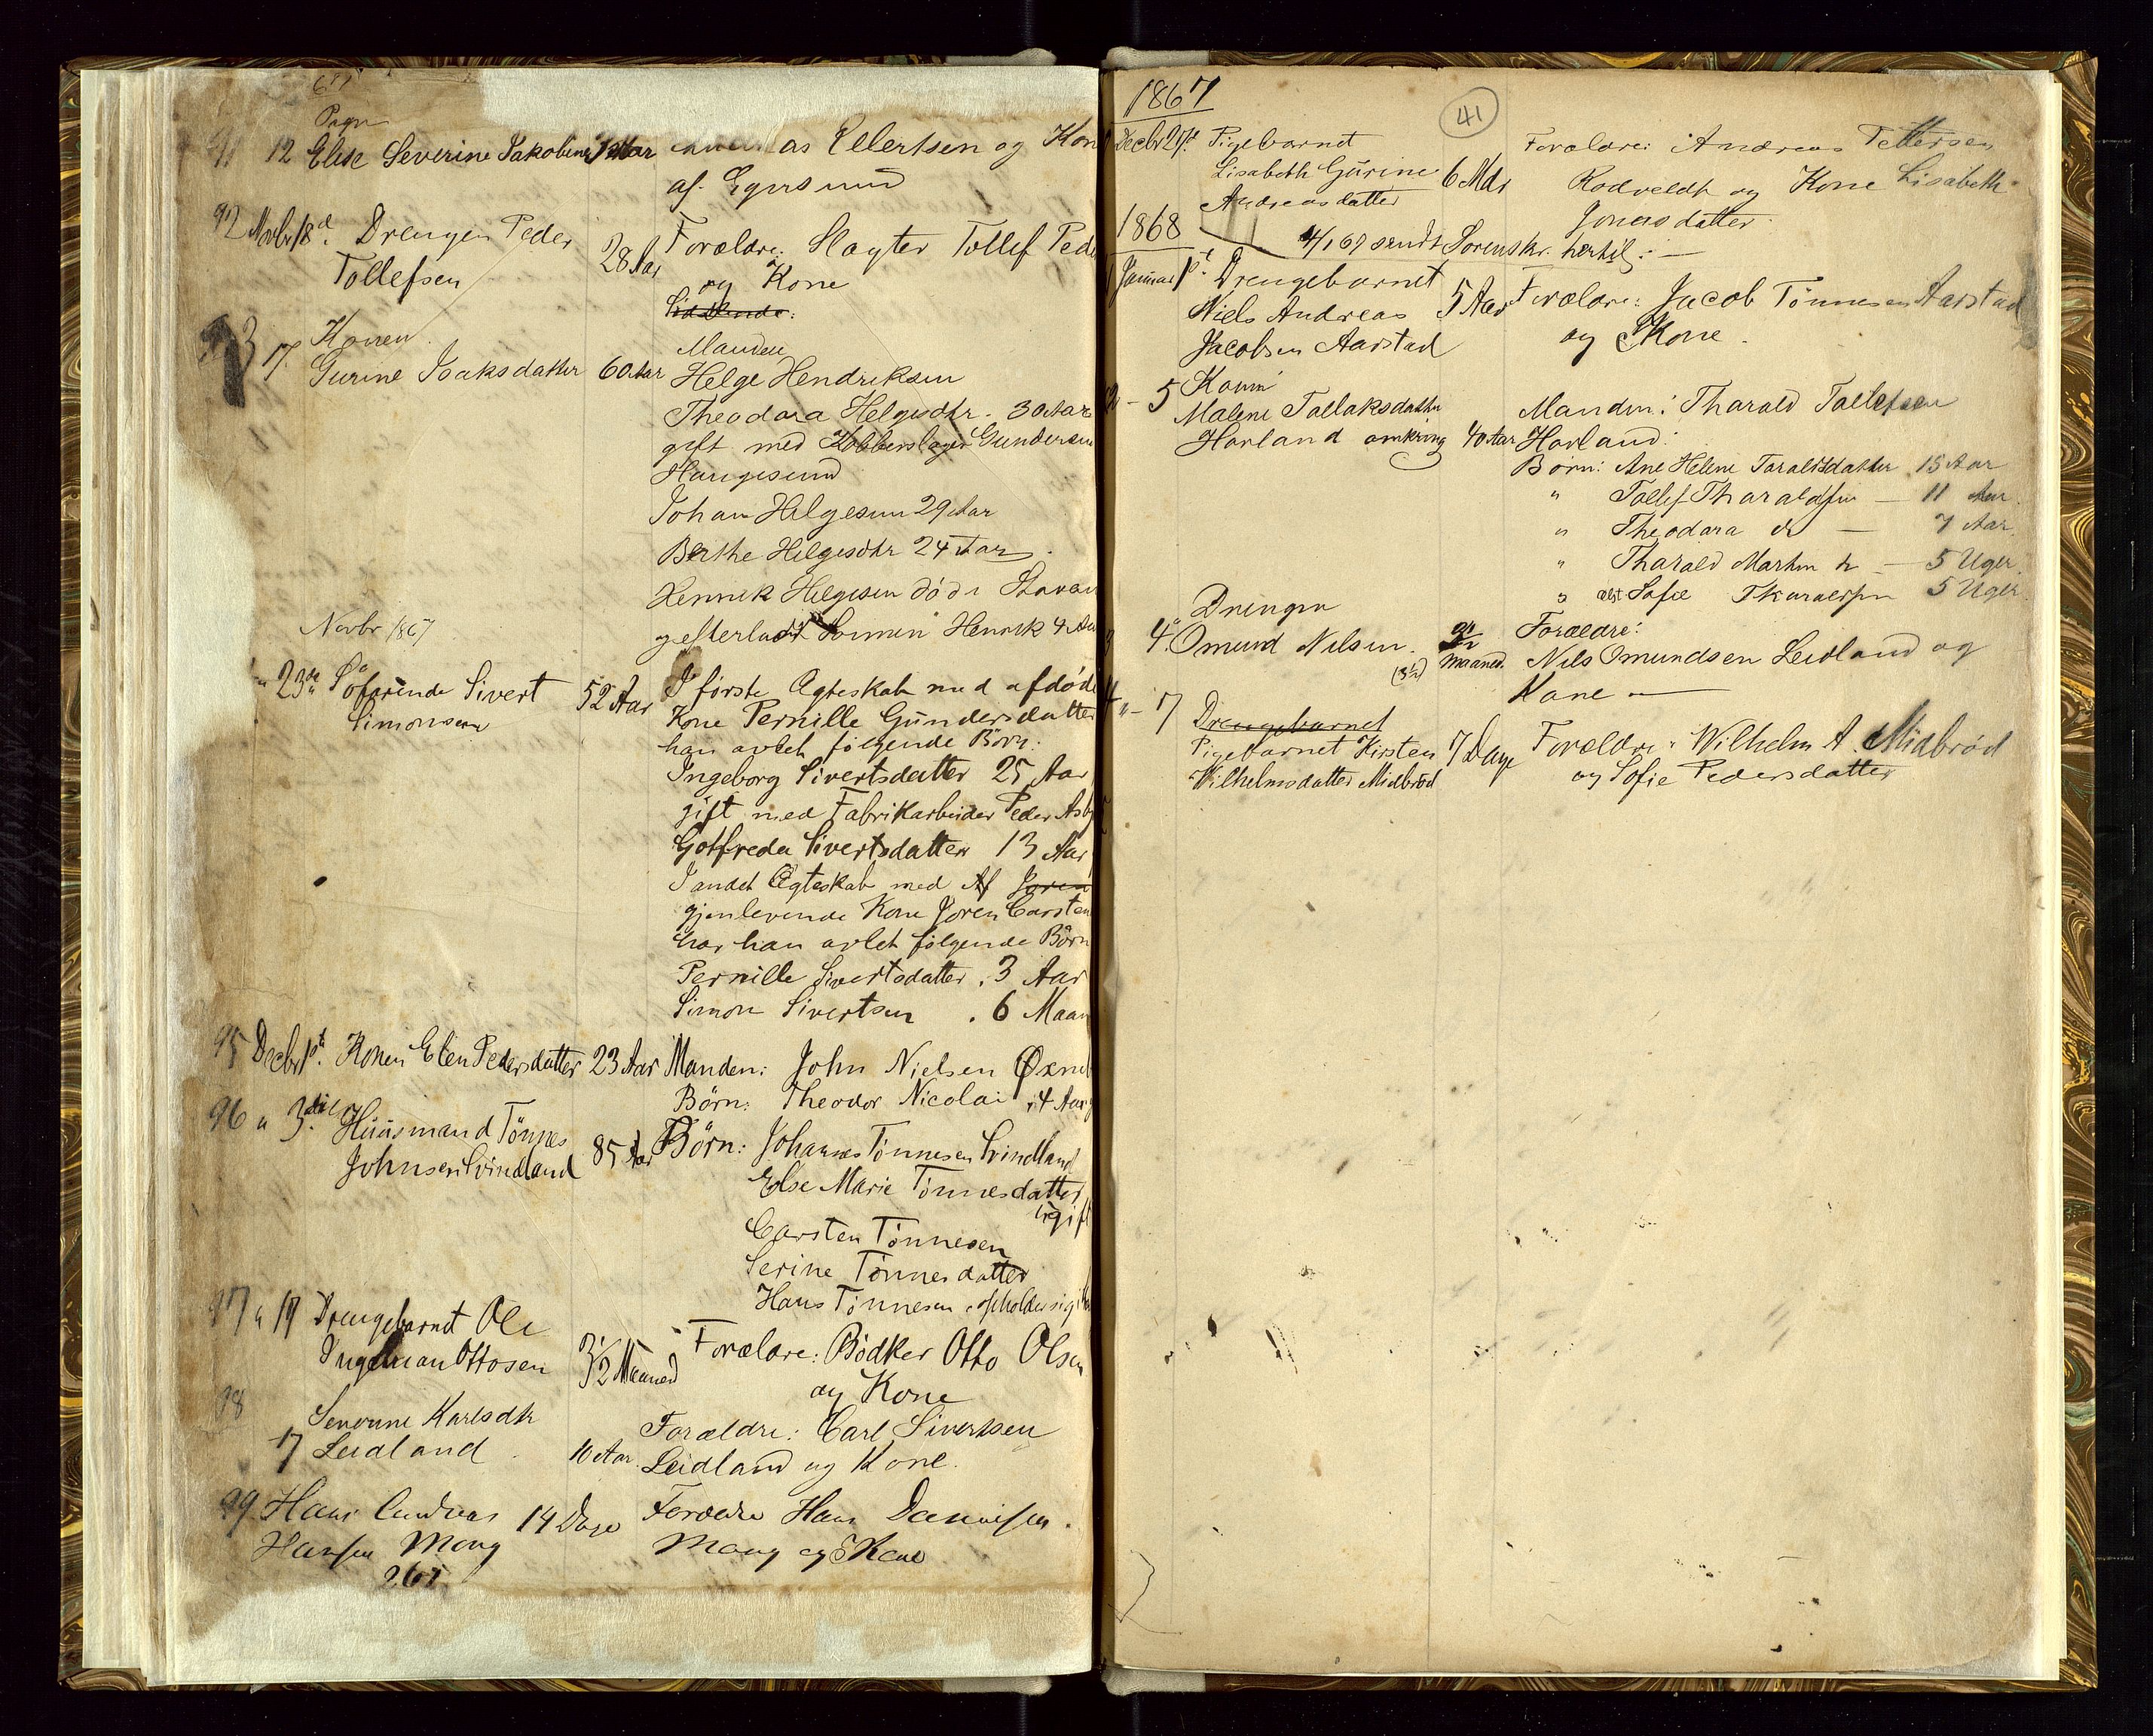 Pigen
91 12 Elise Severine Jakobine Aar as Ellertsen og Kon
af Egersund
92 Novbr 18d. Drengen Peder 28 Aar Forældre: Slagter Tollef Ped
Tollefsen og Kone
Konen Manden
93 17. Gurine Isaksdatter 60 Aar Helge Hendriksen
Theodora Helgesdtr. 30 Aar
gift med Kobberslager Gundersen
Haugesund
Johan Helgesen 29 Aar
Berthe Helgesdtr 24 Aar.
Henrik Helgesen død i Stavan
Novbr 1867 og efterladt Sønnen Henrik 4 Aar
" 23de Søfarende Sivert 52 Aar I første Ægteskab med afdøde
Simonsen Kone Pernille Gundersdatter
han avlet følgende Børn:
Ingeborg Sivertsdatter 25 Aar
gift med Fabrikarbeider Peder Asb
Gotfreda Sivertsdatter 13 Aar
I andet Ægteskab med Af Joren
gjenlevende Kone Joren Carsten
har han avlet følgende Børn
Pernille Sivertsdatter. 3 Aar
Simon Sivertsen . 6 Maan
95 Decbr 1st. Konen Elen Pedersdatter 23 Aar Manden: John Nielsen Øxne
Børn: Theodor Nicolai, 4 Aar
96 " 3die Huusmand Tönnes 85 Aar Børn: Johannes Tönnesen Svindland
Johnsen Svindland Else Marie Tönnesdatter
ugift
Carsten Tönnesen
Serine Tönnesdatter
Hans Tönnesen opholder sig i
97 " 17 Drengebarnet Ole 3 1/2 Maaned Forældre: Bödker Otto Olsen
Ingelman Ottosen og Kone
98 Severine Karlsdtr Forældre: Carl Sivertsen
17 Leidland 10 Aar. Leidland og Kone.
99 Hans Andreas 14 Dage Forældre Hans Danielsen.
Hansen Mong Mong og Kone
267
1867
41
Decbr 27de Pigebarnet Forældre: Andreas Pettersen
Lisabeth Gurine 6 Mdr Rodveldt og Kone Lisabeth
Andreasdatter Jonasdatter
1868 4/1 69 sendt Sorenskr. hertil:—
Januar 1st. Drengebarnet 5 Aar Forældre: Jacob Tönnesen Aarstad
Niels Andreas og Kone.
Jacobsen Aarstad
2 - 5 Konen
Malene Tollaksdatter Manden: Tharald Tollefsen
Horland omkring 40 Aar Horland:
Børn: Ane Helene Taraldsdatter 15 Aar
" Tollef Tharaldsen — 11 Aar.
" Theodora dr — 7 Aar.
" Tharald Martin — 5 Uger.
" Sofie Tharaldsen 5 Uger
Drengen Forældre:
4. Omund Nilsen. Maaned. Nils Omundsen Leidland og
(3½) Kone —
4 "- 7 Drengebarnet
Pigebarnet Kirsten 7 Dage Forældre: Wilhelm A. Midbrød
Wilhelmsdatter Midbrød og Sofie Pedersdatter